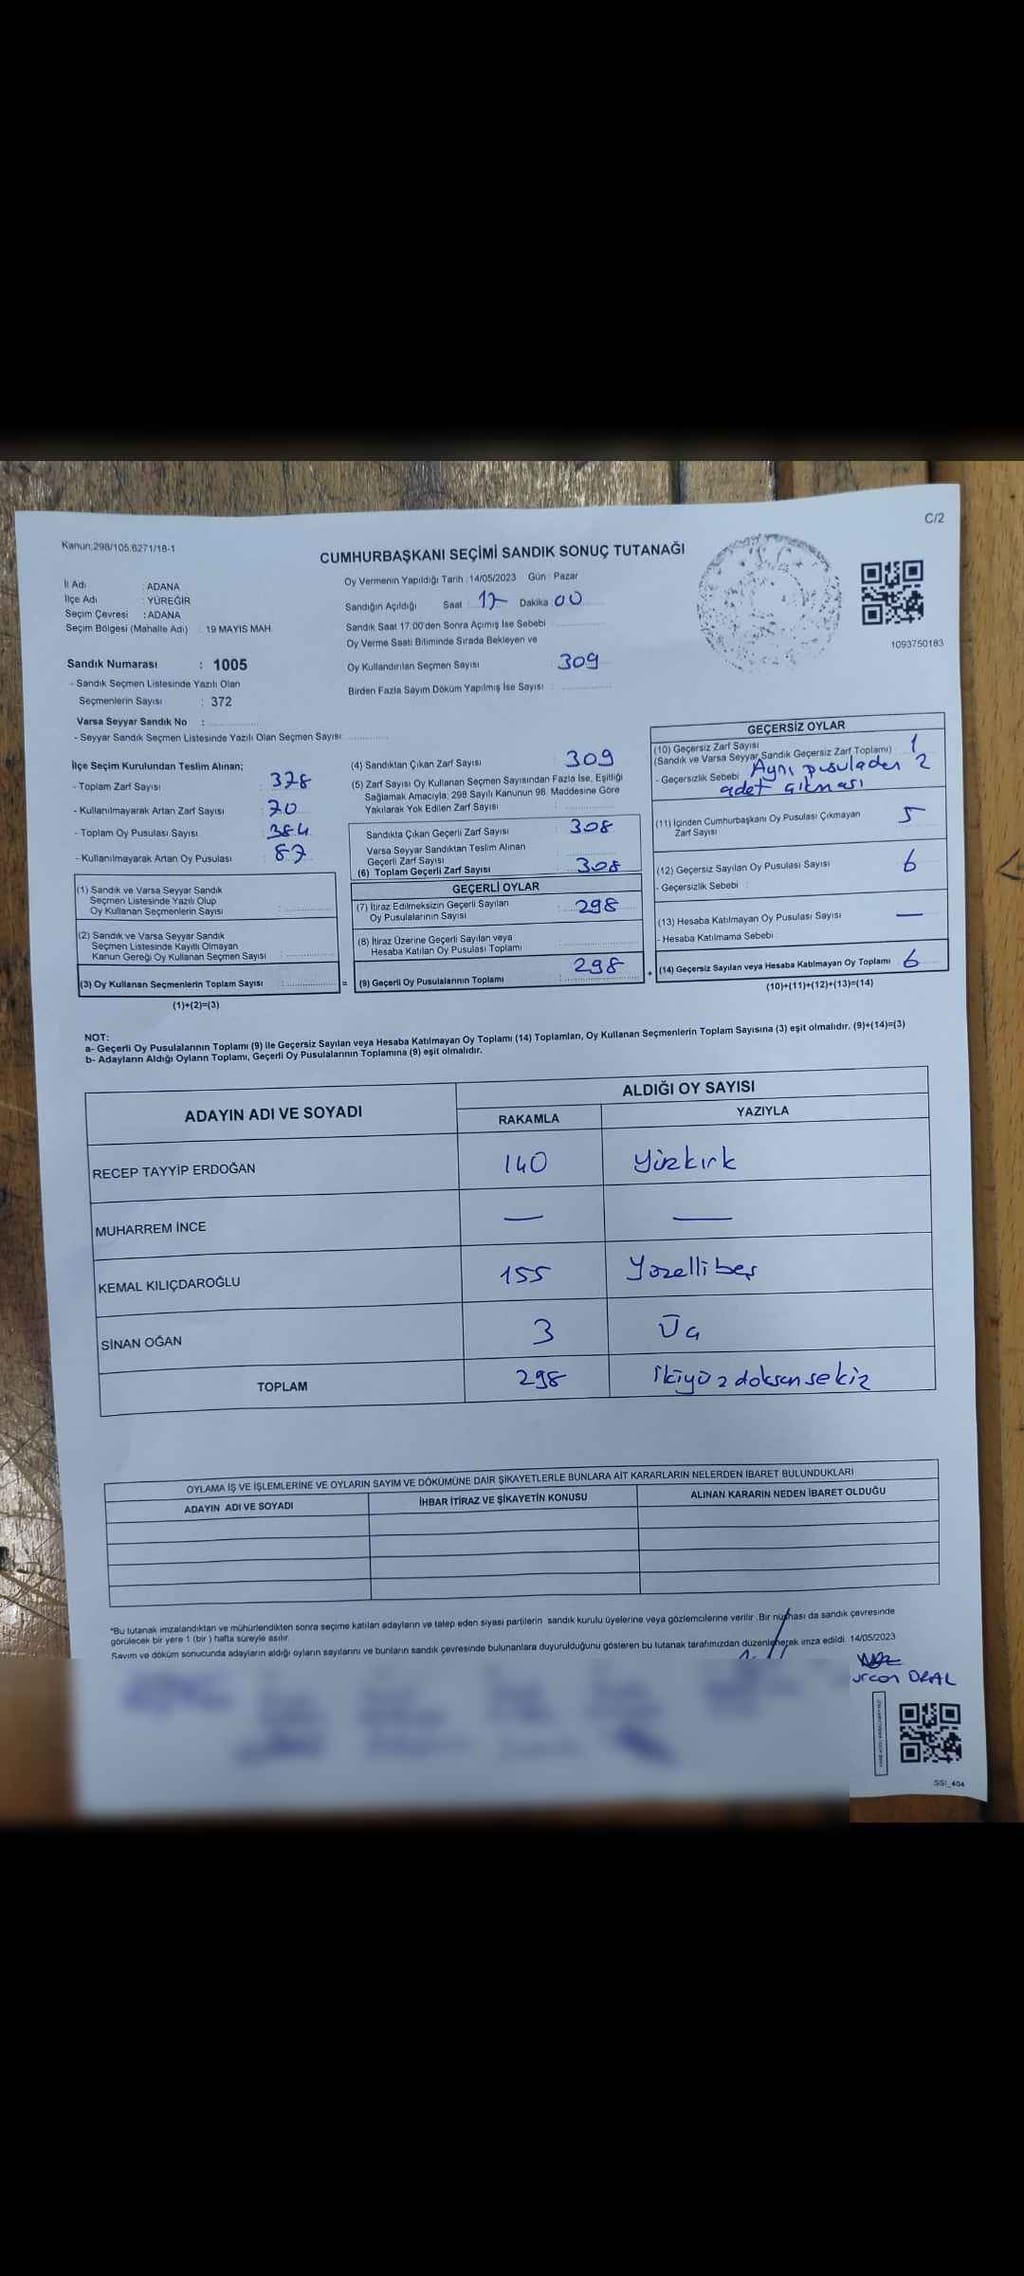 C/2
Kanun:298/105,6271/18-1
CUMHURBAŞKANI SEÇİMİ SANDIK SONUÇ TUTANAĞI
İl Adı : ADANA
İlçe Adı : YÜREĞİR
Seçim Çevresi : ADANA
Seçim Bölgesi (Mahalle Adı) : 19 MAYIS MAH.
Oy Vermenin Yapıldığı Tarih : 14/05/2023 Gün : Pazar
Sandığın Açıldığı Saat : 17 Dakika : 00
Sandık Saat 17:00'den Sonra Açımış İse Sebebi
Oy Verme Saati Bitiminde Sırada Bekleyen ve
Oy Kullandırılan Seçmen Sayısı : 309
Birden Fazla Sayım Döküm Yapılmış İse Sayısı :
1093750183
Sandık Numarası : 1005
- Sandık Seçmen Listesinde Yazılı Olan
Seçmenlerin Sayısı : 372
Varsa Seyyar Sandık No :
- Seyyar Sandık Seçmen Listesinde Yazılı Olan Seçmen Sayısı
İlçe Seçim Kurulundan Teslim Alınan;
- Toplam Zarf Sayısı : 378
- Kullanılmayarak Artan Zarf Sayısı : 70
- Toplam Oy Pusulası Sayısı : 384
- Kullanılmayarak Artan Oy Pusulası : 87
(1) Sandık ve Varsa Seyyar Sandık
Seçmen Listesinde Yazılı Olup
Oy Kullanan Seçmenlerin Sayısı :
(2) Sandık ve Varsa Seyyar Sandık
Seçmen Listesinde Kayıtlı Olmayan
Kanun Gereği Oy Kullanan Seçmen Sayısı :
(3) Oy Kullanan Seçmenlerin Toplam Sayısı :
(1)+(2)=(3)
(4) Sandıktan Çıkan Zarf Sayısı : 309
(5) Zarf Sayısı Oy Kullanan Seçmen Sayısından Fazla İse, Eşitliği
Sağlamak Amacıyla, 298 Sayılı Kanunun 98. Maddesine Göre
Yakılarak Yok Edilen Zarf Sayısı :
Sandıkta Çıkan Geçerli Zarf Sayısı : 308
Varsa Seyyar Sandıktan Teslim Alınan
Geçerli Zarf Sayısı
(6) Toplam Geçerli Zarf Sayısı : 308
GEÇERLİ OYLAR
(7) İtiraz Edilmeksizin Geçerli Sayılan
Oy Pusulalarının Sayısı : 298
(8) İtiraz Üzerine Geçerli Sayılan veya
Hesaba Katılan Oy Pusulası Toplamı :
(9) Geçerli Oy Pusulalarının Toplamı : 298
GEÇERSİZ OYLAR
(10) Geçersiz Zarf Sayısı
(Sandık ve Varsa Seyyar Sandık Geçersiz Zarf Toplamı) 1
- Geçersizlik Sebebi Aynı pusuladan 2
adet çıkması
(11) İçinden Cumhurbaşkanı Oy Pusulası Çıkmayan
Zarf Sayısı 5
(12) Geçersiz Sayılan Oy Pusulası Sayısı 6
- Geçersizlik Sebebi :
(13) Hesaba Katılmayan Oy Pusulası Sayısı —
- Hesaba Katılmama Sebebi :
(14) Geçersiz Sayılan veya Hesaba Katılmayan Oy Toplamı 6
(10)+(11)+(12)+(13)=(14)
NOT:
a- Geçerli Oy Pusulalarının Toplamı (9) ile Geçersiz Sayılan veya Hesaba Katılmayan Oy Toplamı (14) Toplamları, Oy Kullanan Seçmenlerin Toplam Sayısına (3) eşit olmalıdır. (9)+(14)=(3)
b- Adayların Aldığı Oyların Toplamı, Geçerli Oy Pusulalarının Toplamına (9) eşit olmalıdır.
ADAYIN ADI VE SOYADI ALDIĞI OY SAYISI
RAKAMLA YAZIYLA
RECEP TAYYİP ERDOĞAN 140 Yüzkırk
MUHARREM İNCE — —
KEMAL KILIÇDAROĞLU 155 Yüzellibeş
SİNAN OĞAN 3 Üç
TOPLAM 298 İkiyüzdoksansekiz
OYLAMA İŞ VE İŞLEMLERİNE VE OYLARIN SAYIM VE DÖKÜMÜNE DAİR ŞİKAYETLERLE BUNLARA AİT KARARLARIN NELERDEN İBARET BULUNDUKLARI
ADAYIN ADI VE SOYADI İHBAR İTİRAZ VE ŞİKAYETİN KONUSU ALINAN KARARIN NEDEN İBARET OLDUĞU
*Bu tutanak imzalandıktan ve mühürlendikten sonra seçime katılan adayların ve talep eden siyasi partilerin sandık kurulu üyelerine veya gözlemcilerine verilir. Bir nüshası da sandık çevresinde
görülecek bir yere 1 (bir) hafta süreyle asılır.
Sayım ve döküm sonucunda adayların aldığı oyların sayılarını ve bunların sandık çevresinde bulunanlara duyurulduğunu gösteren bu tutanak tarafımızdan düzenlenerek imza edildi. 14/05/2023
SSİ_404